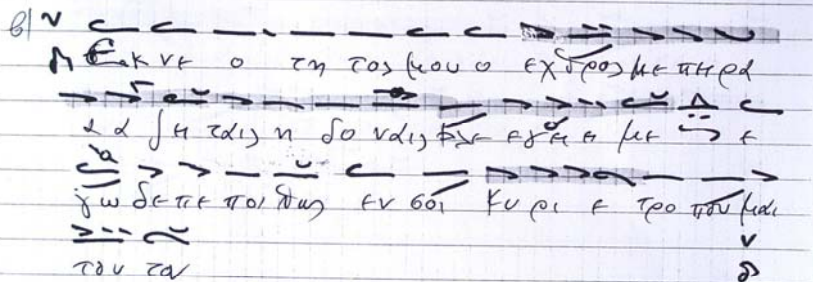 β|
Εκ νε ο τη τος μου ο εχθρος με πη ρα
α α ζη ταις η δο ναις φλε ε γη η με ε
γω δε πε ποι θως εν σοι Κυ ρι ε τρο που μαι
του τον